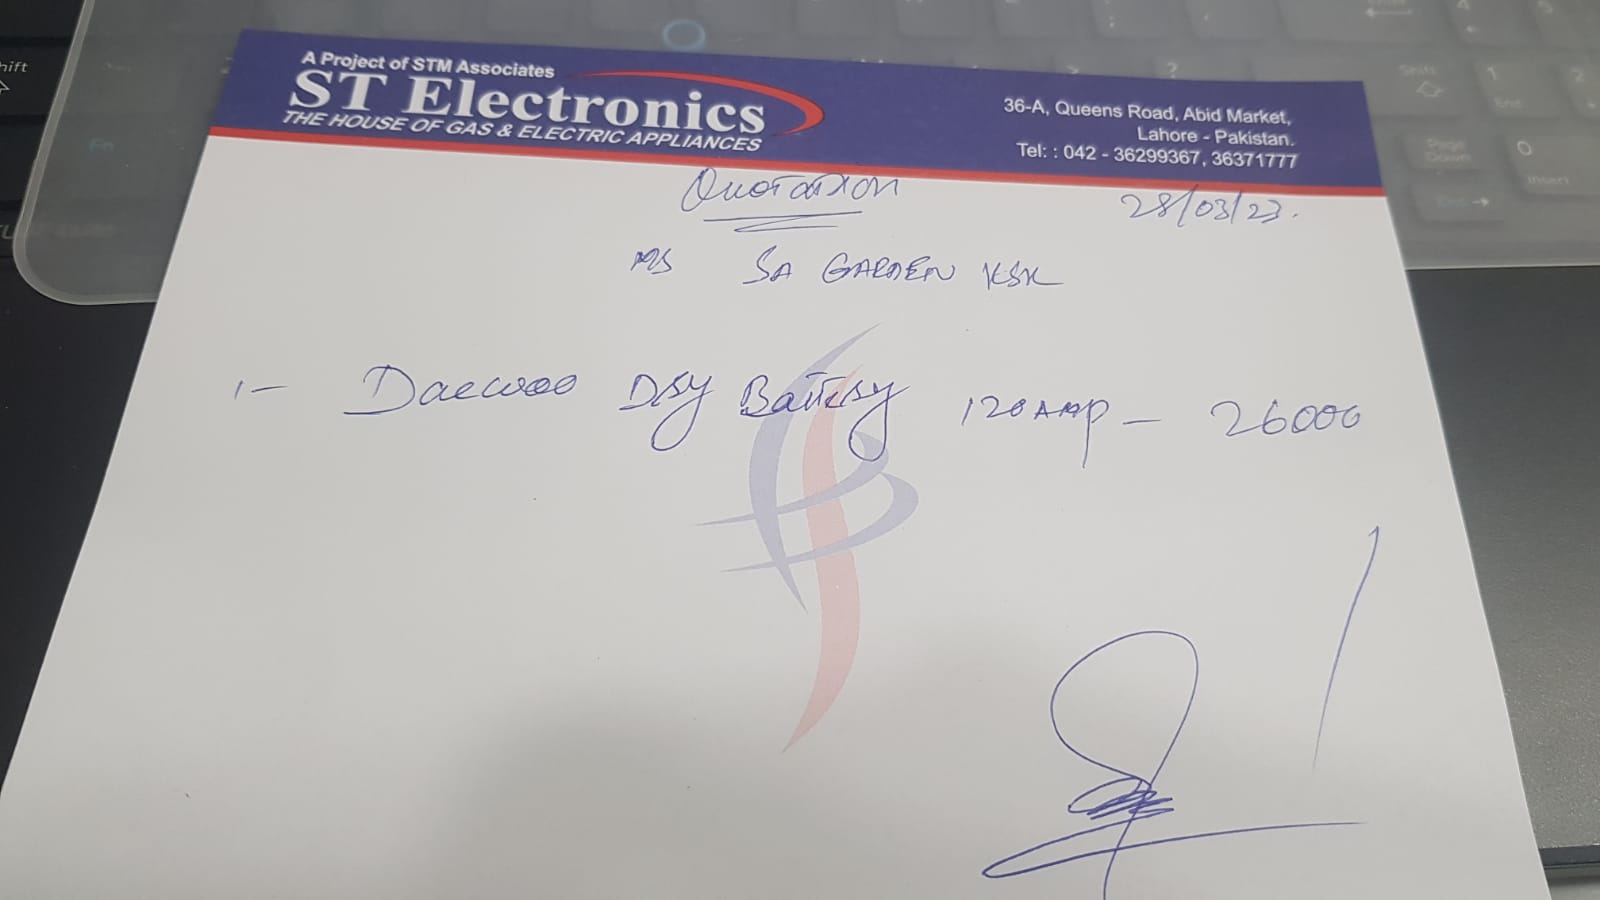 A Project of STM Associates
ST Electronics
THE HOUSE OF GAS & ELECTRIC APPLIANCES
36-A, Queens Road, Abid Market,
Lahore - Pakistan.
Tel: : 042 - 36299367, 36371777
Quotation
28/03/23.
M/S SA GARDEN KSK
1- Daewoo Dry Battery 120 AMP - 26000
Shift
Fn
?
Shift
1
End
2
Page Down
0
Insert
End
4
5